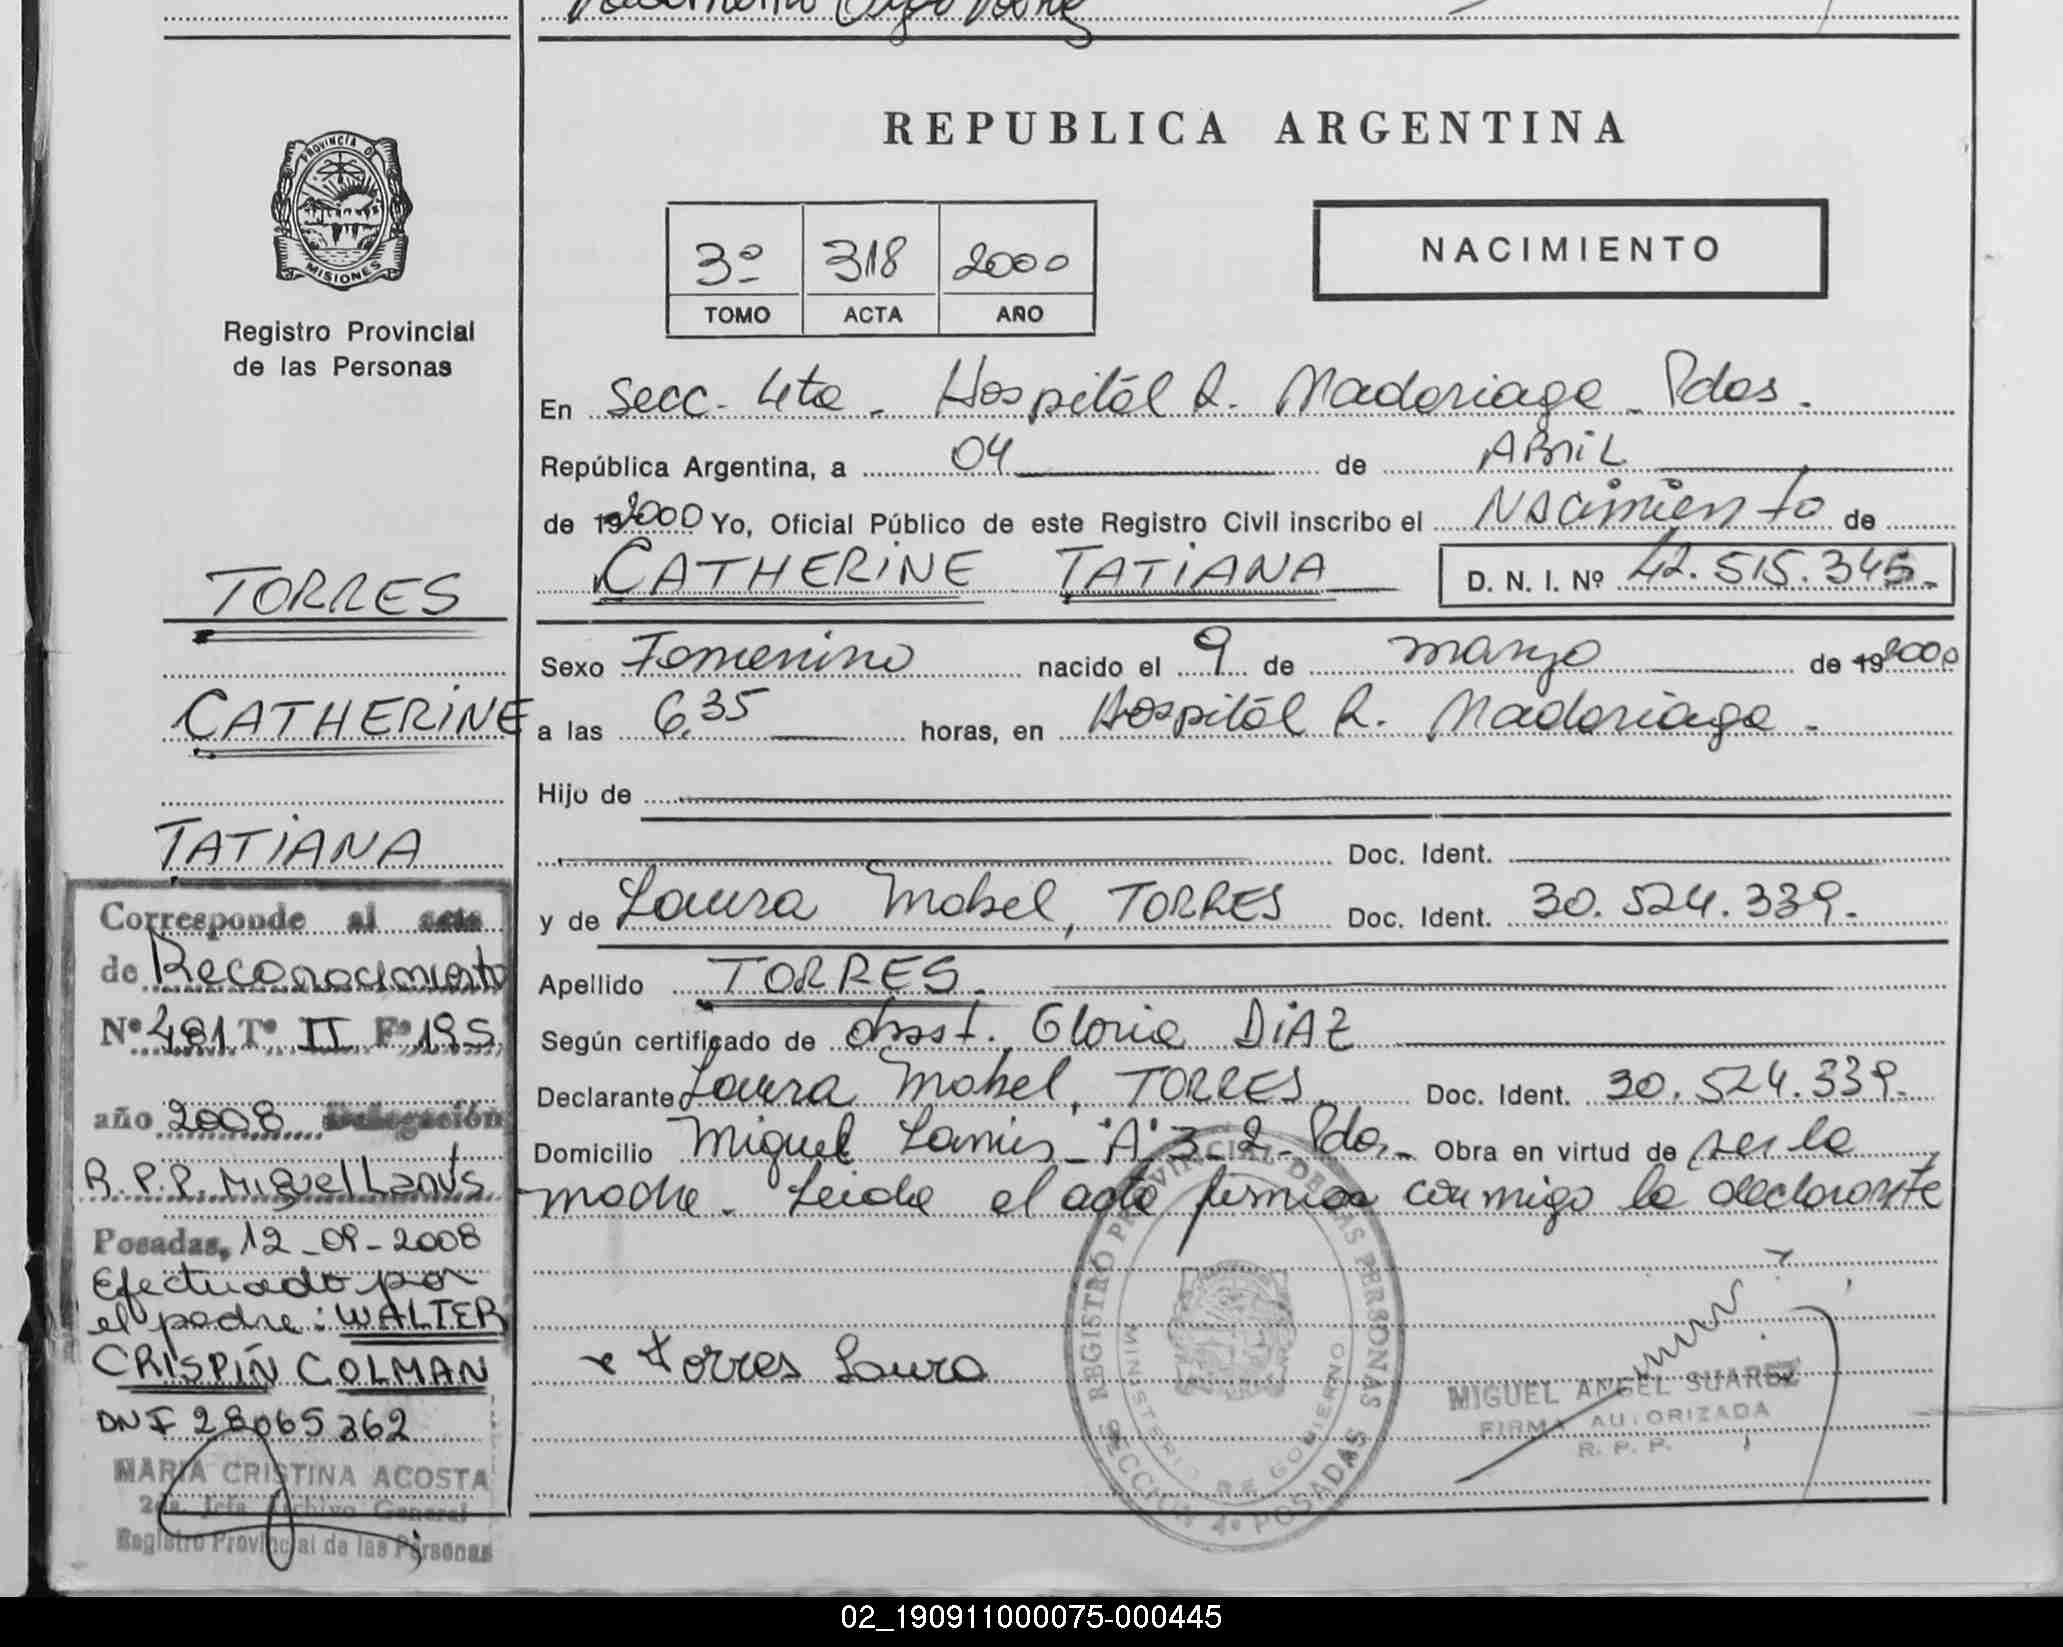 REPUBLICA ARGENTINA
PROVINCIA DE
MISIONES
Registro Provincial
de las Personas
3º 318 2000
TOMO ACTA AÑO
NACIMIENTO
En Secc. 4ta. Hospitál R. Madariaga - Pdas.
República Argentina, a 04 de ABRIL
de 192000 Yo, Oficial Público de este Registro Civil inscribo el NACimiento de
CATHERINE TATIANA D. N. I. Nº 42.515.345.-
Sexo Femenino nacido el 9 de marzo de 192000
a las 6,35 horas, en Hospitál R. Madariaga.
Hijo de
Doc. Ident.
y de Laura Mabel, TORRES Doc. Ident. 30.524.339.
Apellido TORRES.
Según certificado de obsst. Gloria DIAZ
Declarante Laura Mabel, TORRES Doc. Ident. 30.524.339.-
Domicilio Miguel Lanus - "A" 3-2 Pdas.- Obra en virtud de ser la
madre. Leida el acta firma conmigo la declarante
Torres Laura
REGISTRO PROVINCIAL DE LAS PERSONAS
MINISTERIO DE GOBIERNO
SECCION 4º POSADAS
MIGUEL ANGEL SUAREZ
FIRMA AUTORIZADA
R. P. P.
TORRES
CATHERINE
TATIANA
Corresponde al acta
de Reconocimiento
Nº 481 Tº II Fº 195
año 2008 Delegación
R.P.P. Miguel Lanús
Posadas, 12-09-2008
Efectuado por
el padre: WALTER
CRISPIN COLMAN
DNI 28065362
MARIA CRISTINA ACOSTA
2da. Jefa Archivo General
Registro Provincial de las Personas
02_190911000075-000445